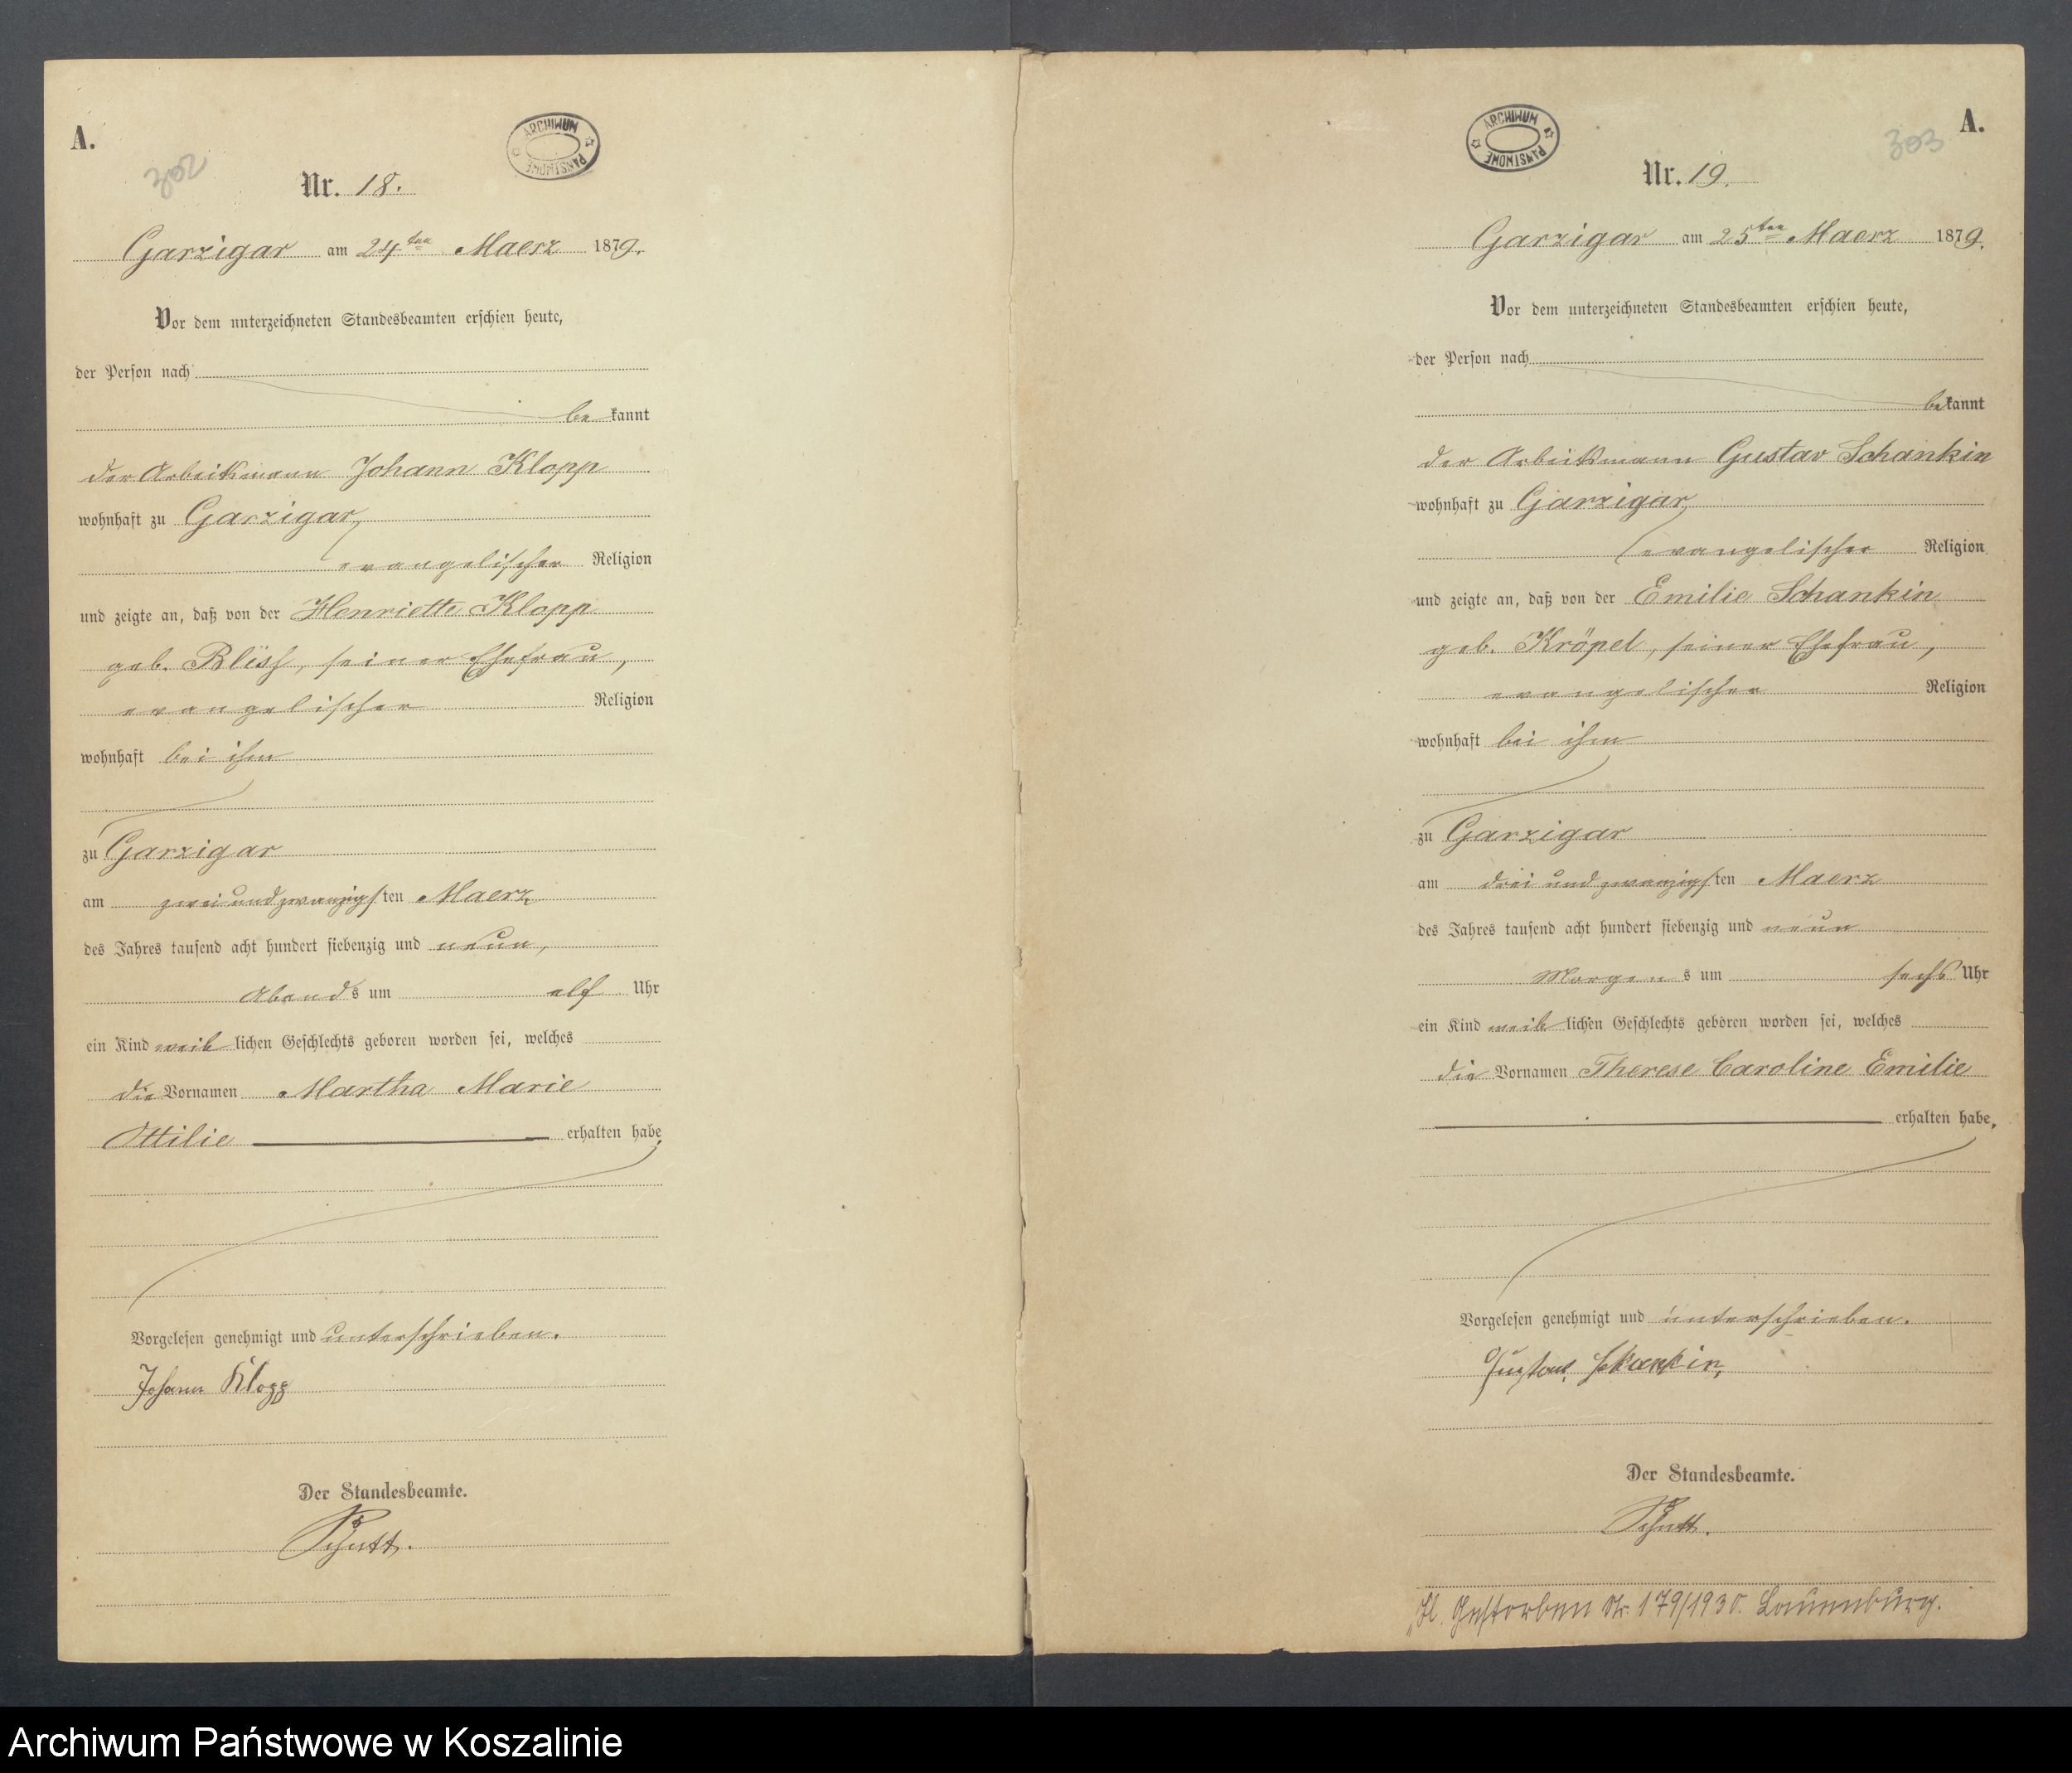 A.
302
ARCHIWUM PAŃSTWOWE
Nr. 18.
Garzigar am 24ten Maerz 1879.
Vor dem unterzeichneten Standesbeamten erschien heute,
der Person nach
bekannt
der Arbeitsmann Johann Klopp
wohnhaft zu Garzigar,
evangelischer Religion
und zeigte an, daß von der Henriette Klopp
geb. , seiner Ehefrau,
evangelischer Religion
wohnhaft bei ihm
zu Garzigar
am zwei und zwanzigsten Maerz
des Jahres tausend acht hundert siebenzig und neun,
Abends um elf Uhr
ein Kind weiblichen Geschlechts geboren worden sei, welches
die Vornamen Martha Marie
Ottilie erhalten habe,
Vorgelesen genehmigt und unterschrieben.
Johann Klopp
Der Standesbeamte.
Schutt.
A.
303
ARCHIWUM PAŃSTWOWE
Nr. 19.
Garzigar am 25ten Maerz 1879.
Vor dem unterzeichneten Standesbeamten erschien heute,
der Person nach
bekannt
der Arbeitsmann Gustav Schankin
wohnhaft zu Garzigar,
evangelischer Religion
und zeigte an, daß von der Emilie Schankin
geb. Kröpel, seiner Ehefrau,
evangelischer Religion
wohnhaft bei ihm
zu Garzigar
am drei und zwanzigsten Maerz
des Jahres tausend acht hundert siebenzig und neun
Morgens um sechs Uhr
ein Kind weiblichen Geschlechts geboren worden sei, welches
die Vornamen Therese Caroline Emilie
erhalten habe,
Vorgelesen genehmigt und unterschrieben.
Gustav Schankin,
Der Standesbeamte.
Schutt.
Gestorben Nr. 179/1930. Lauenburg.
Archiwum Państwowe w Koszalinie